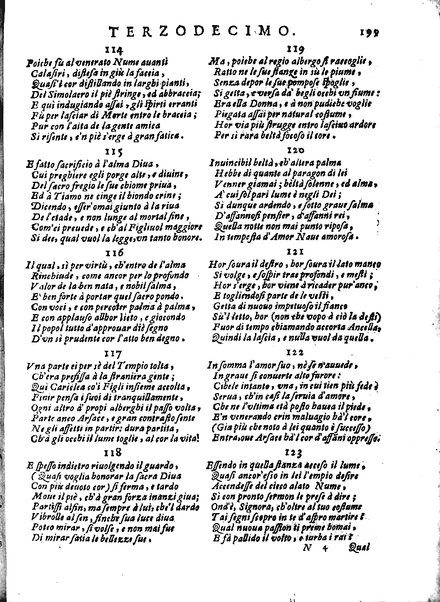 TERZODECIMO. 199
114
Poiche fù al venerato Nume auanti
Calasiri, distesa in giù la faccia,
Quasi'l cor distillando in larghi pianti,
Del Simolacro il piè stringe, ed abbraccia;
E qui indugiando assai, gli spirti erranti
Fù per lasciar di Morte entro le braccia;
Pur con l'aita de la gente amica
Si risente, e'n piè s'erge à gran fatica.
115
E fatto sacrificio à l'alma Diua,
Cui preghiere egli porge alte, e diuine,
Del sacro fregio le sue chiome priua,
Ed à Tiamo ne cinge il biondo crine;
Dicendo, esser'omai giunto à la riua
De l'etade, e non lunge al mortal fine,
Com'ei preuede, e ch'al Figliuol maggiore
Si dee, qual vuol la legge, vn tanto honore.
116
Il qual, sì per virtù, ch'entro de l'alma
Rinchiude, come ancor per lo profondo
Valor de la ben nata, e nobil salma,
E' ben forte à portar quel sacro pondo.
Con voci, e con percoter palma à palma,
E con applauso allhor lieto, e giocondo
Il popol tutto d'approuar diè segno
D'vn sì prudente cor l'atto ben degno.
117
Vna parte ei per sè del Tempio tolta,
Ch'era prefissa à la straniera gente;
Quì Cariclea co'i Figli insieme accolta,
Pinir pensa i suoi dì tranquillamente,
Ogni altro à propri alberghi il passo volta,
Parte anco Arsace, e gran contrasto sente
Ne gli affetti in partir: dura partita,
Ch'à gli occhi il lume toglie, al cor la vita!
118
E spesso indietro riuolgendo il guardo,
(Quasi voglia honorar la sacra Diua
Con più deuoto cor) si ferma, e tardo
Moue il piè, ch'à gran forza inanzi giua;
Partissi alfin, ma sempre à lui, che'l dardo
Vibrolle al sen, finche sua luce diua
Poteo mirar, si volse, e non mai fue
Di mirar satia le bellezze sue.
119
Ma, poiche al regio albergo si raccoglie,
Ratto ne le sue stanze in sù le piume,
Senza depor le sue pompose spoglie,
Si getta, e versa da' begli occhi vn fiume:
Era ella Donna, e à non pudiche voglie
Piegata assai per natural costume,
Hor via più strugge entro lasciuo ardore
Per sì rara beltà focoso il core.
120
Inuincibil beltà, ch'altera palma
Hebbe di quante al paragon di lei
Venner giamai; beltà solenne, ed alma,
A' cui sol pari lume è negli Dei;
Sì dunque ardendo, e sotto graue salma
D'affannosi pensier, d'affanni rei,
Quella notte non mai punto riposa,
In tempesta d'Amor Naue amorosa.
121
Hor soura il destro, hor soura il lato manco
Si volge, e sospir trae profondi, e mesti;
Hor s'erge, hor viene à ricader pur'anco,
E togliendosi parte de le vesti,
Getta di nuouo impetuoso il fianco
Sù'l letto, hor (non che vopo à ciò la desti)
Puor di tempo chiamando accorta Ancella,
Quindi la lascia, e nulla vuol da quella.
122
In somma l'amor suo, nè se n'auuede,
In graue si conuerte alto furore:
Cibele intanto, vna, in cui tien più fede
Serua, ch'in casi la seruia d'amore,
Che ne l'vltima età posto hauea il piede,
E'n venerando crin maluagio ha'l core,
(Già più che noto à lei quanto è successo)
Entra, oue Arsace hà'l cor d'affani oppresso.
123
Essendo in quella stanza acceso il lume,
Quasi ancor'esso in lei l'empio desire
Accendesse del cieco alato Nume,
Sì con pronto sermon le prese à dire;
Ond'è, Signora, ch'oltre al tuo costume
Tai segni scopro in te d'aspro martire?
Qual nuoua passion ti preme homai,
E fà pallido il volto, e turba i rai?
N 4 Qual